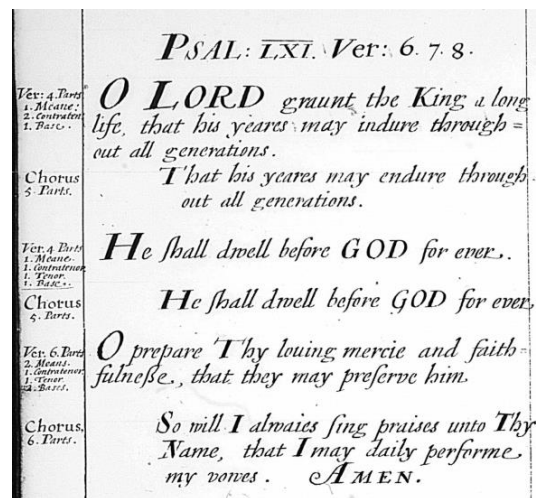 PSAL: LXI. Ver: 6. 7. 8.
Ver: 4. Parts
1. Meane:
2. Contraten
1. Base.
O LORD graunt the King a long
life, that his yeares may indure through=
out all generations.
Chorus
5. Parts.
That his yeares may endure through
out all generations.
Ver. 4 Parts
1. Meane.
1. Contratenor
1. Tenor.
1. Base.
He shall dwell before GOD for ever.
Chorus
5. Parts.
He shall dwell before GOD for ever,
Ver. 6. Parts
2. Means.
1. Contratenor
1. Tenor.
2. Bases.
O prepare Thy louing mercie and faith=
fulneſſe, that they may preſerve him
Chorus,
6. Parts.
So will I alwaies ſing praises unto Thy
Name, that I may daily performe
my vowes. AMEN.